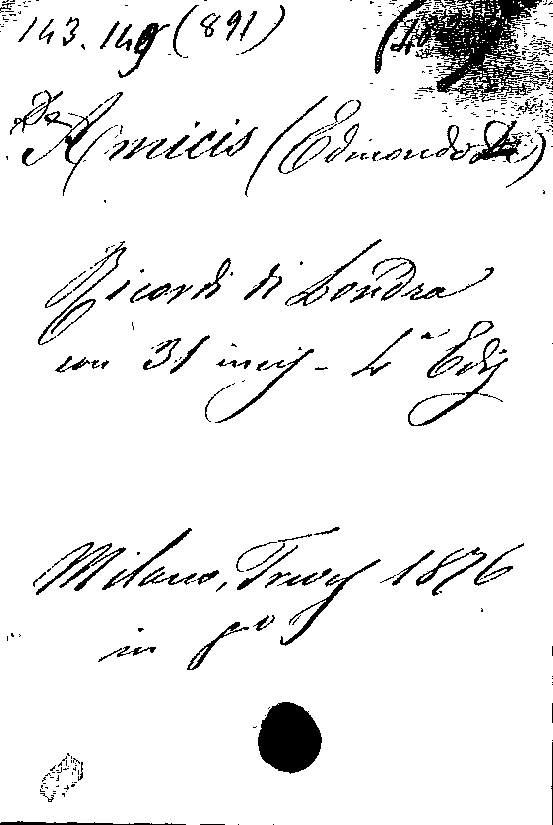 143. 149 (891)
De Amicis (Edmondo De)
Ricordi di Londra
con 31 incis - 4ª Ediz
Milano, Treves 1876
in fº